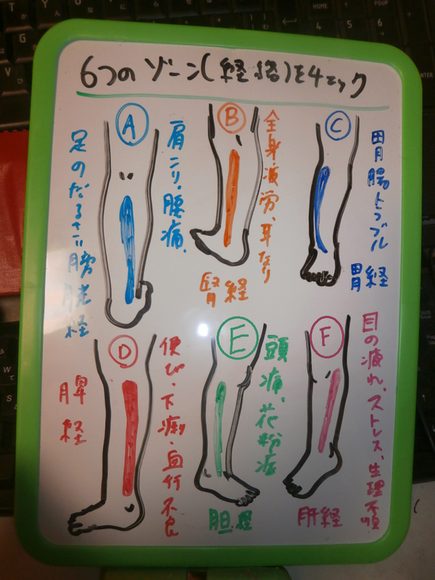 6つのゾーン(経絡)をチェック
A
肩こり、腰痛、
足のだるさ
膀胱経
B
全身疲労、耳なり
腎経
C
胃腸トラブル
胃経
D
便ぴ、下痢、血行不良
脾経
E
頭痛、花粉症
胆経
F
目の疲れ、ストレス、生理不順
肝経